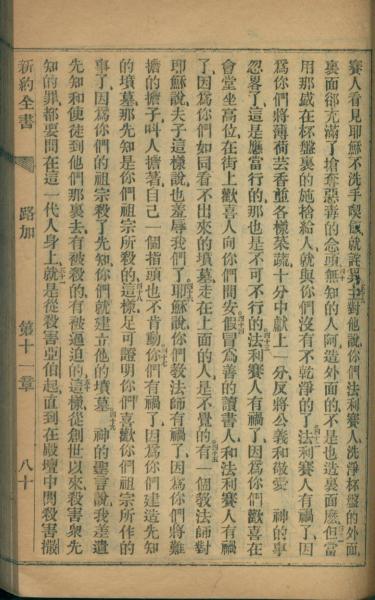 賽人看見耶穌不洗手喫飯就詫異主對他說你們法利賽人洗淨杯盤的外面
裏面卻充滿了搶奪惡毒的念頭無知的人阿造外面的不是也造裏面麼但當
用那盛在杯盤裏的施捨給人就與你們沒有不乾淨的了法利賽人有禍了因
為你們將薄荷芸香並各樣菜蔬十分中獻上一分反將公義和敬愛 神的事
忽畧了這是應當行的那也是不可不行的法利賽人有禍了因為你們歡喜在
會堂坐高位在街上歡喜人向你們問安假冒為善的讀書人和法利賽人有禍
了因為你們如同看不出來的墳墓走在上面的人是不覺的有一個教法師對
耶穌說夫子這樣說也羞辱我們了耶穌說你們教法師有禍了因為你們將難
擔的擔子叫人擔著自己一個指頭也不肯動你們有禍了因為你們建造先知
的墳墓那先知是你們祖宗所殺的這樣足可證明你們喜歡你們祖宗所作的
事了因為你們的祖宗殺了先知你們就建立他的墳墓 神的聖言說我差遣
先知和使徒到他們那裏去有被殺的有被逼迫的這樣從創世以來殺害眾先
知的罪都要問在這一代人身上就是從殺害亞伯起直到在殿壇中間殺害撒
新約全書 路加 第十一章 八十